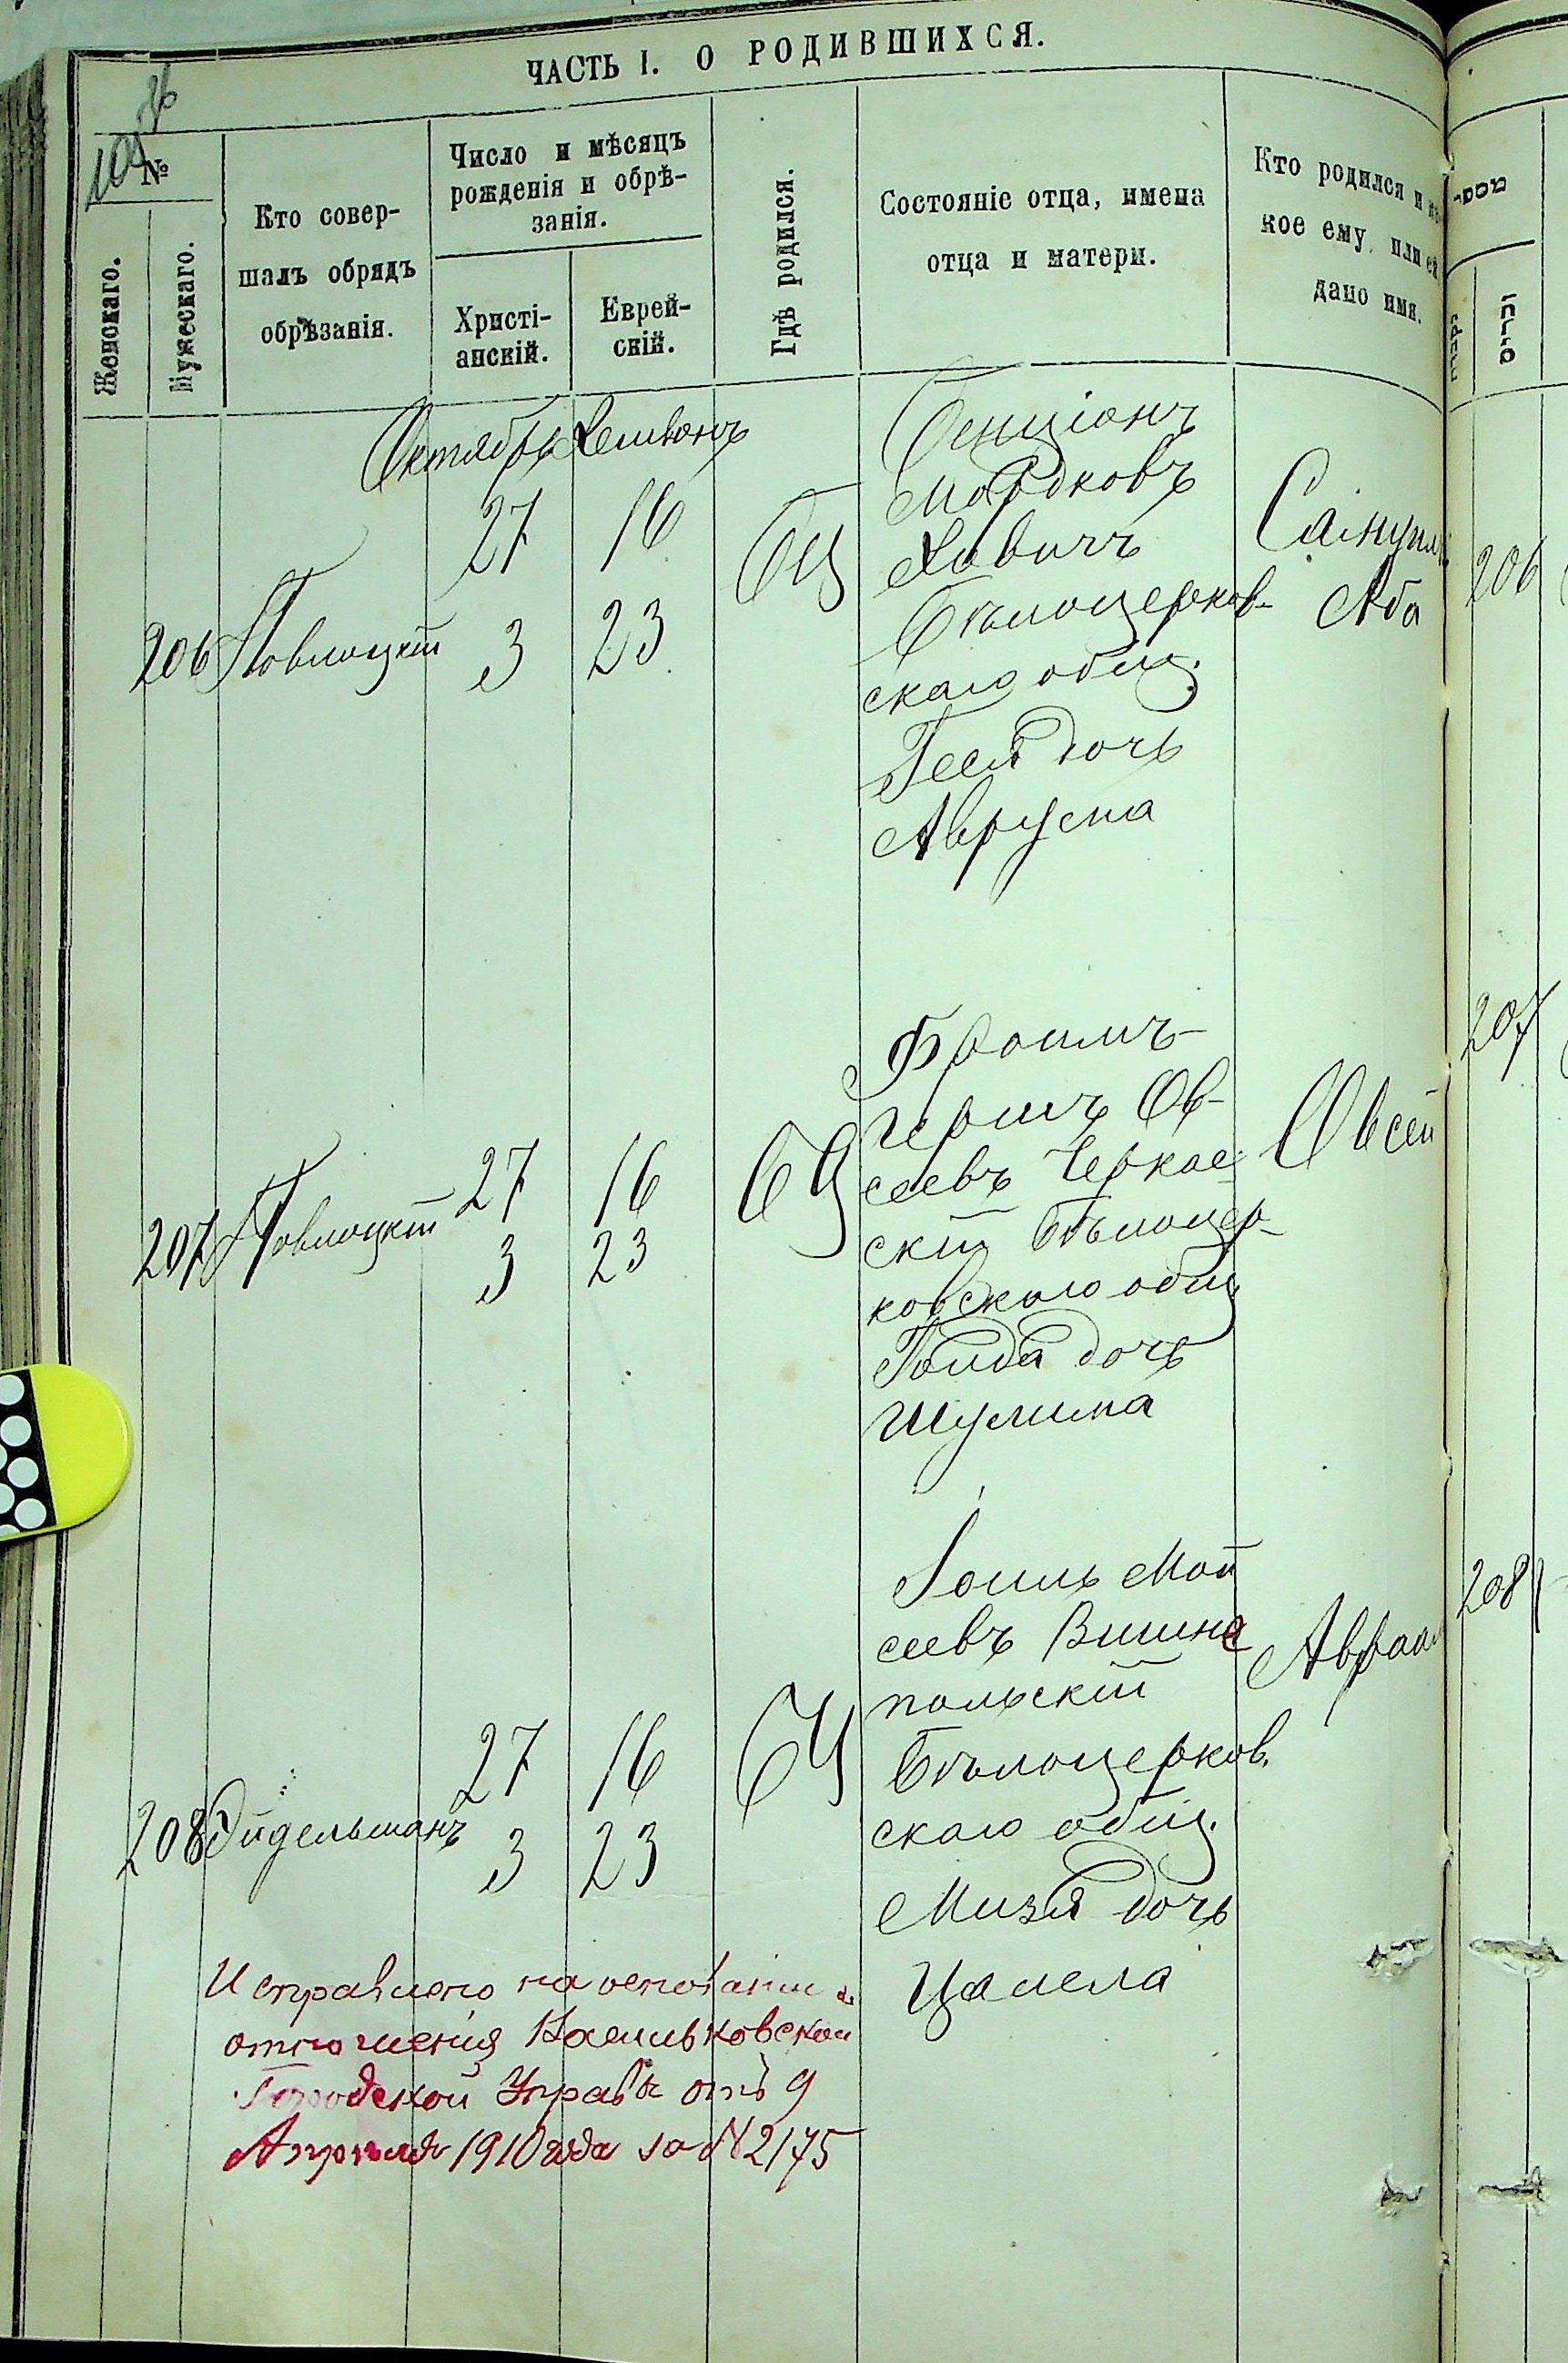 ЧАСТЬ I. О РОДИВШИХСЯ.
№
Женскаго.
Мужескаго.
Кто совер-
шалъ обрядъ
обрѣзанія.
Число и мѣсяцъ
рожденія и обрѣ-
занія.
Христі-
анскій.
Еврей-
скій.
Гдѣ родился.
Состояніе отца, имена
отца и матери.
Кто родился и
кое ему, или ей
дано имя.
Октябрь Хешвонъ
206 Поволоцкій
27 16
3 23
БЦ
Бенціонъ
Мордковъ
Бѣлоцерков-
скаго общ.
Геся дочь
Аврума
Самуилъ
Аба
206
207 Поволоцкій
27 16
3 23
БЦ
Фроимъ-
Гершъ Ов-
сеевъ Черкас-
скій Бѣлоцер-
ковскаго общ
Голда дочь
Шулима
Овсей
207
208 Эйдельманъ
27 16
3 23
БЦ
Іоиль Мой
сеевъ Вишне
польскій
Бѣлоцерков.
скаго общ.
Мизя дочь
Цалела
Авраам
208
Исправлено на основаніи
отношенія Васильковской
Городской Управы отъ 9
Апрѣля 1910 года за N 2175